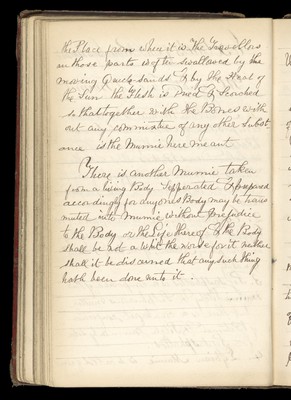 the Place from when it is The Travellers
in those parts is ofte swallowed by the
moving Quick-Sands & by the Heat of
the Sun the Flesh is Dried & Scorched
so that together with the Bones with
out any commixture of any other Subst
ance is the Mumie here meant
There is another Mumie taken
from a living Body Sepperated & prepared
accordingly for any ones Body may be trans
muted into Mumie without prejudice
to the Body or the Life thereof & the Body
shall be not a Whit the worse for it neither
shall it be discerned that any such thing
hath been done unto it.